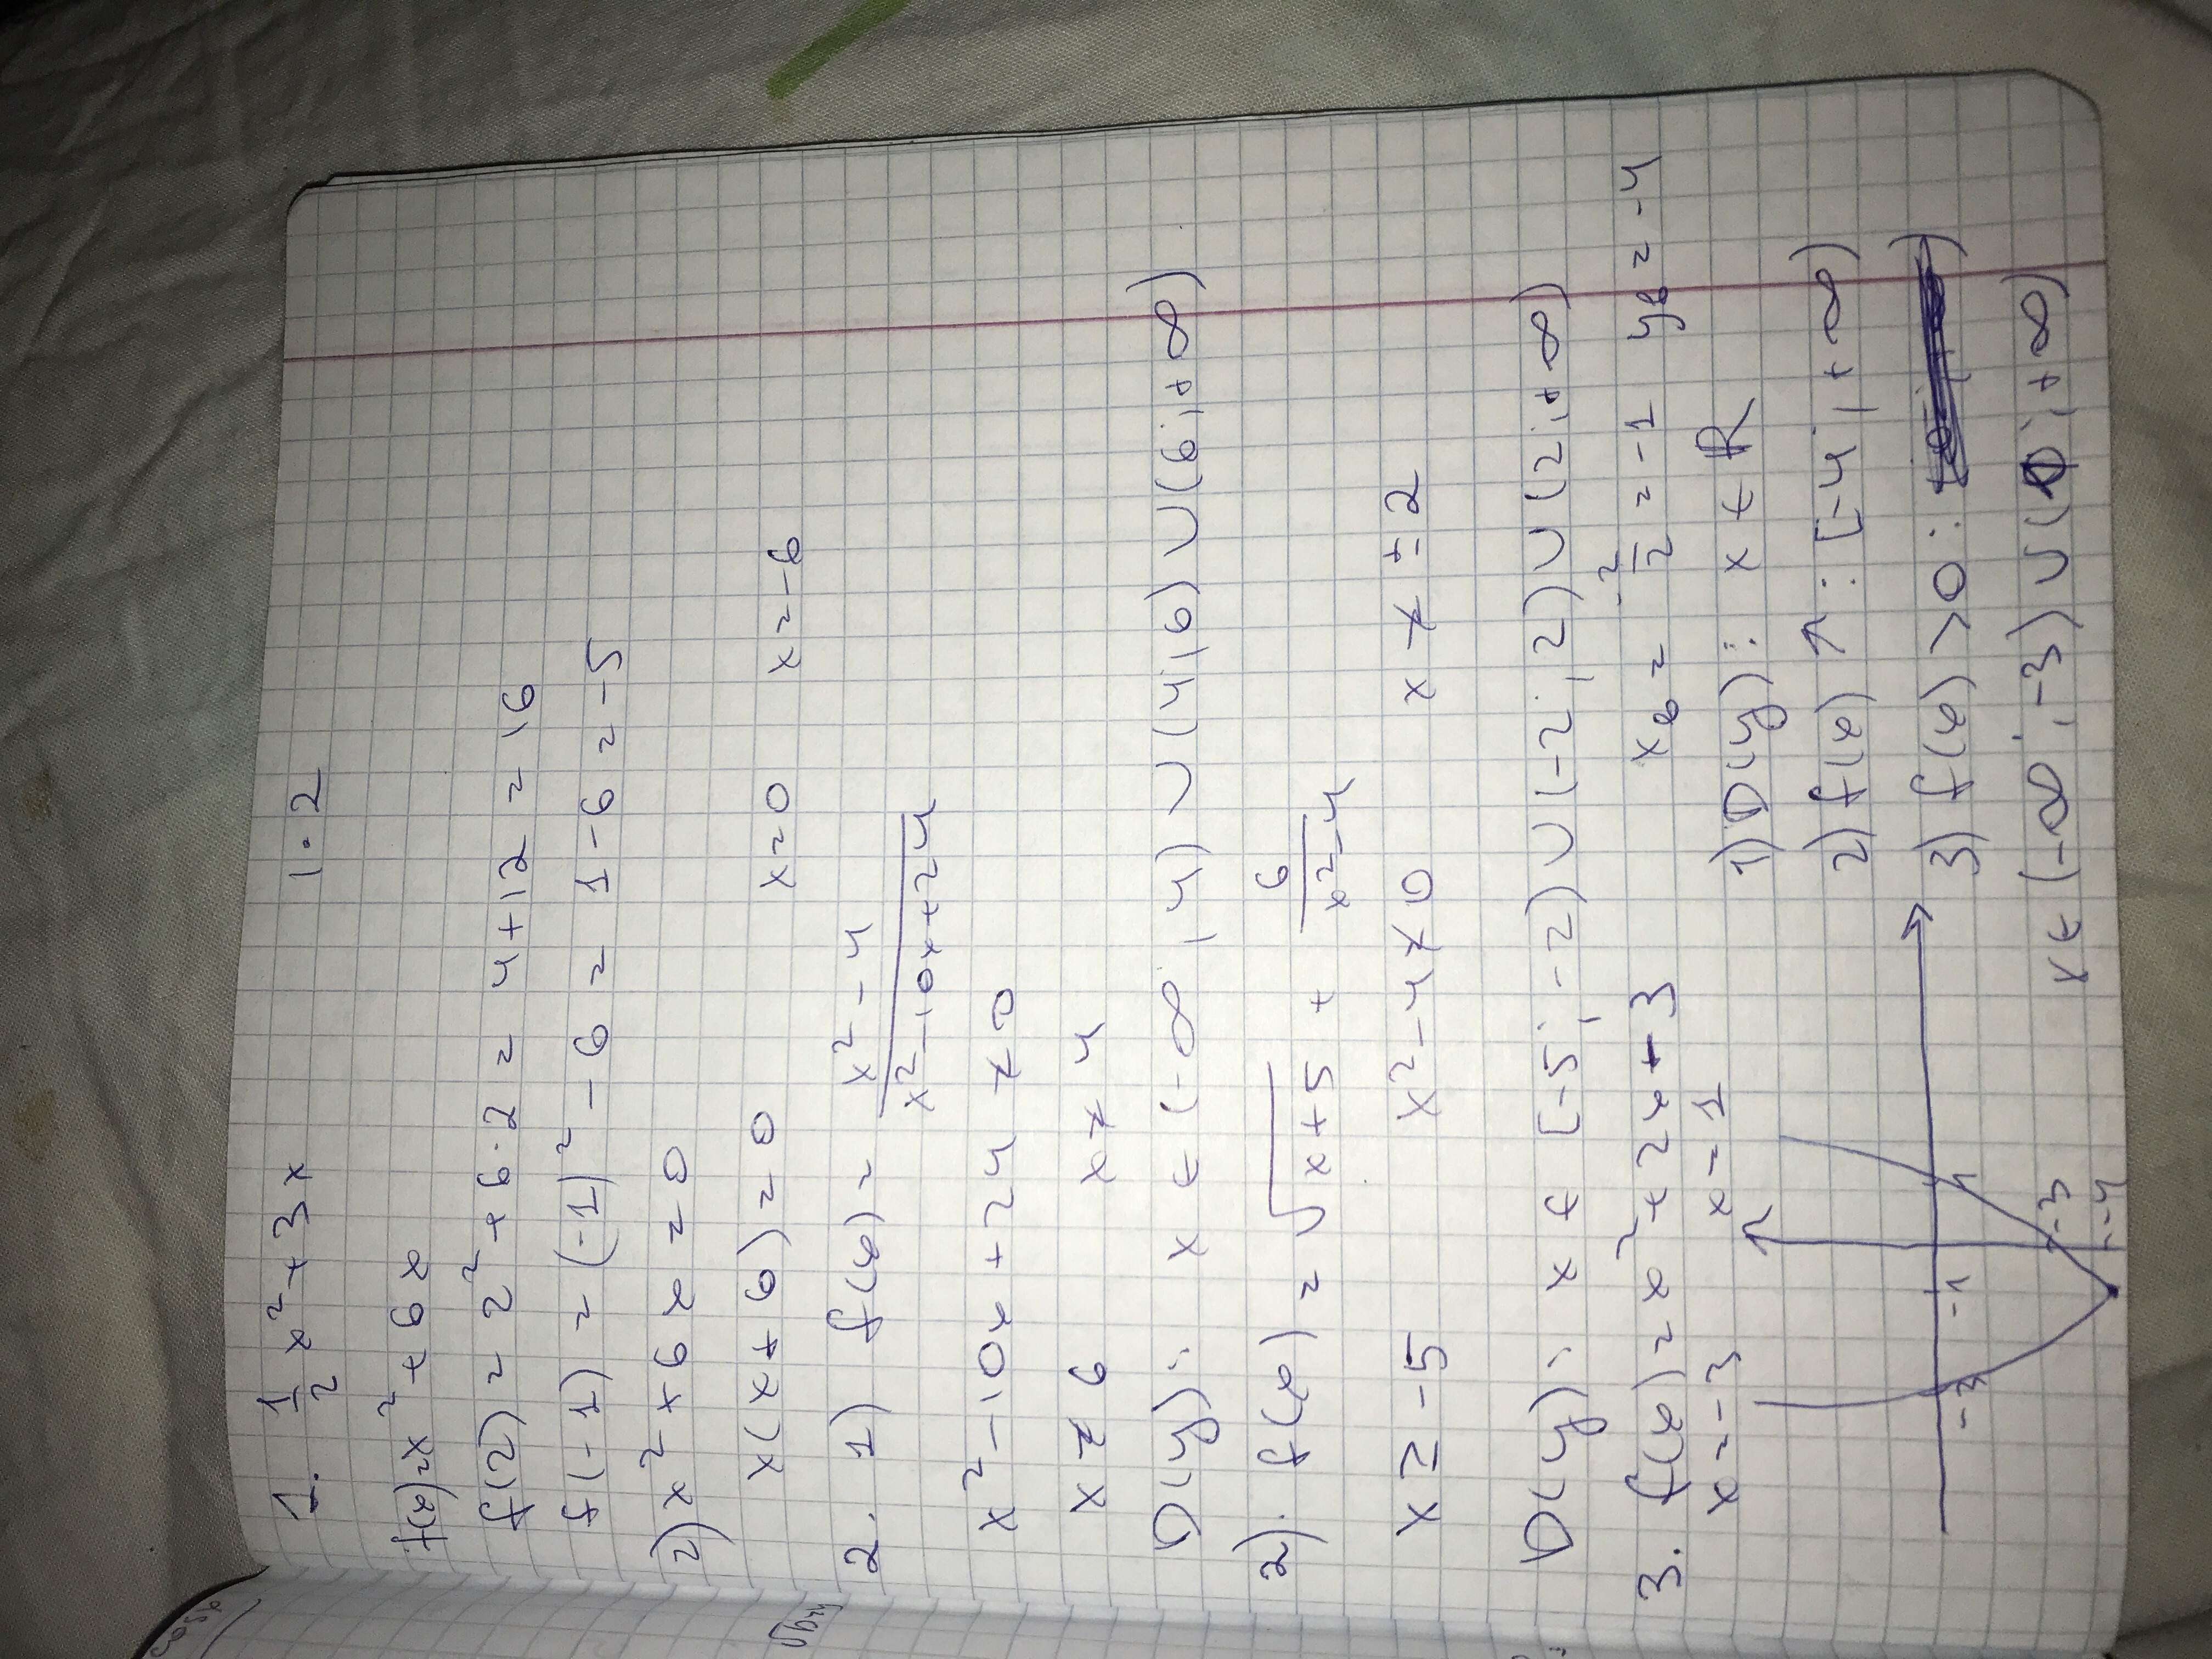 1. 1/2 x² + 3x | · 2
f(x) = x² + 6x
f(2) = 2² + 6·2 = 4+12 = 16
f(-1) = (-1)² - 6 = 1 - 6 = -5
2) x² + 6x = 0
x(x+6) = 0 x=0 x=-6
2. 1) f(x) = (x² - 4)/(x² - 10x + 24)
x² - 10x + 24 ≠ 0
x ≠ 6 x ≠ 4
D(y): x ∈ (-∞; 4) ∪ (4; 6) ∪ (6; +∞)
2). f(x) = √(x+5) + 6/(x² - 4)
x ≥ -5 x² - 4 ≠ 0 x ≠ ±2
D(y): x ∈ [-5; -2) ∪ (-2; 2) ∪ (2; +∞)
3. f(x) = x² + 2x - 3 xв = -2/2 = -1 yв = -4
x = -3 x = 1
1) D(y): x ∈ R
2) f(x) ↑: [-4; +∞)
3) f(x) > 0:
x ∈ (-∞; -3) ∪ (1; +∞)
-3 -1 1
-3
-4